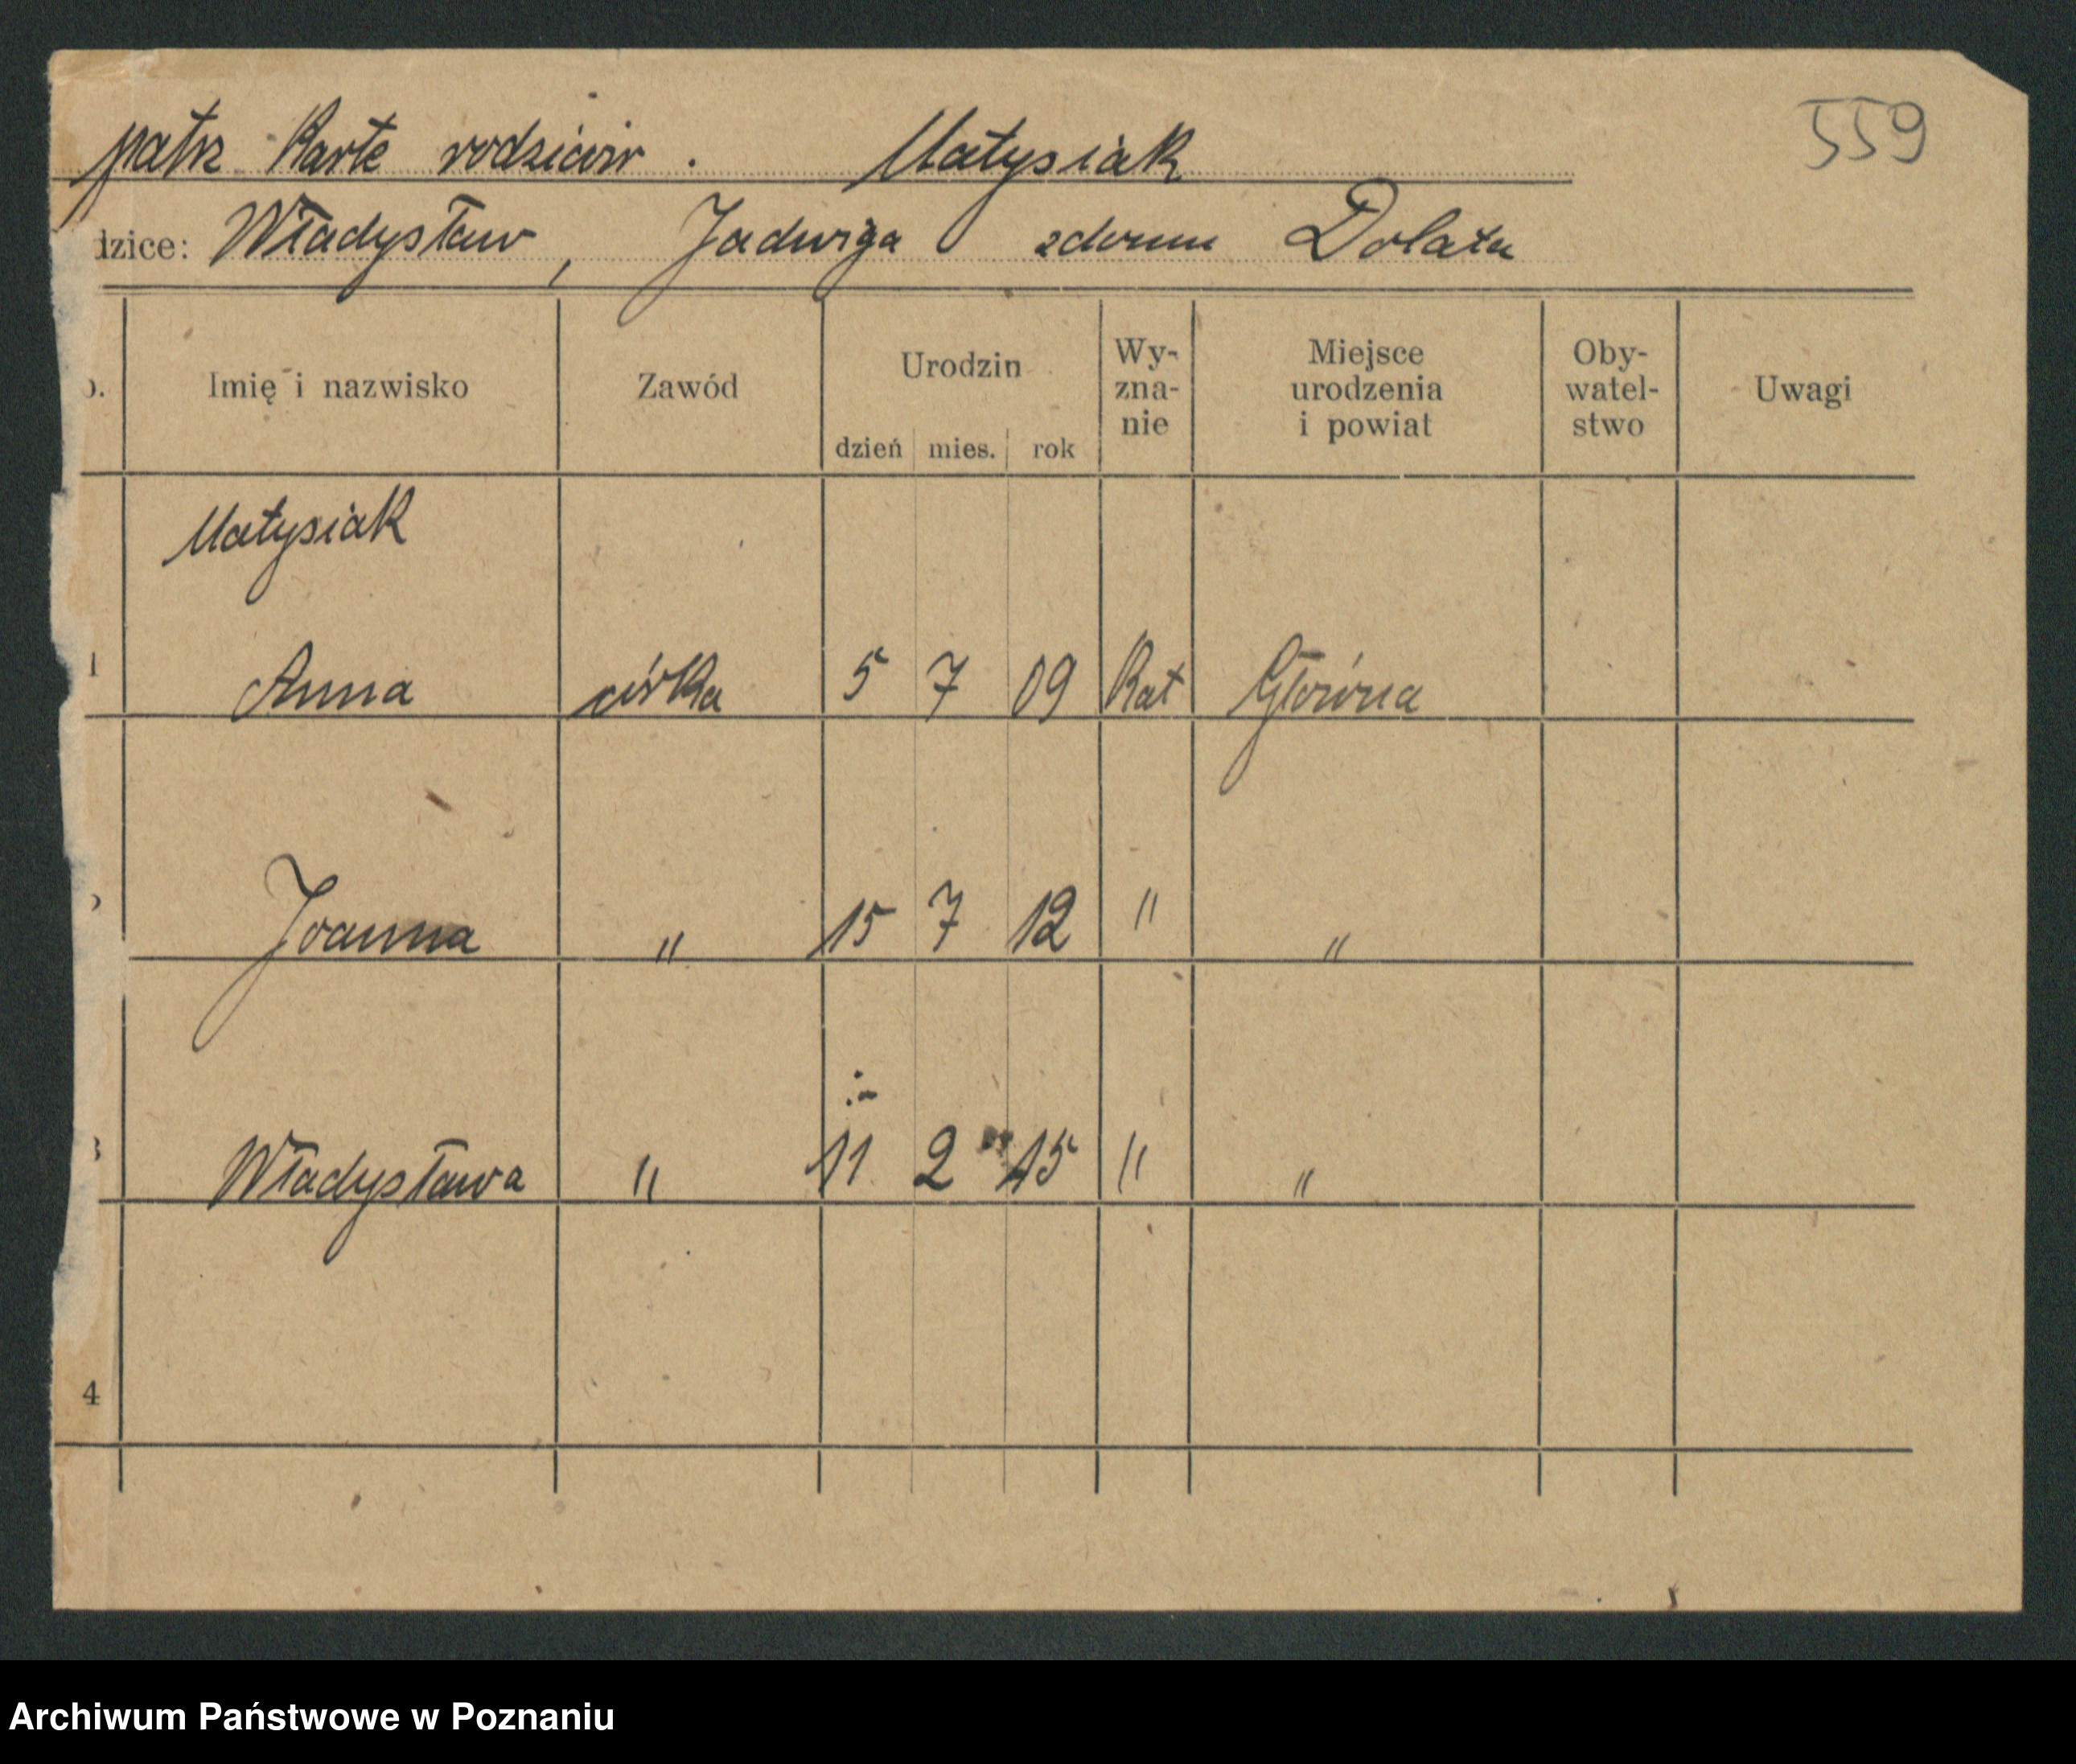 559
patrz Karte rodziców. Matysiak
dzice: Władysław, Jadwiga zdomu Dolata
Imię i nazwisko Zawód Urodzin dzień mies. rok Wy-zna-nie Miejsce urodzenia i powiat Oby-watel-stwo Uwagi
Matysiak
1 Anna córka 5 7 09 Kat Główna
Joanna " 15 7 12 " "
3 Władysława " 11 2 15 " "
4
Archiwum Państwowe w Poznaniu